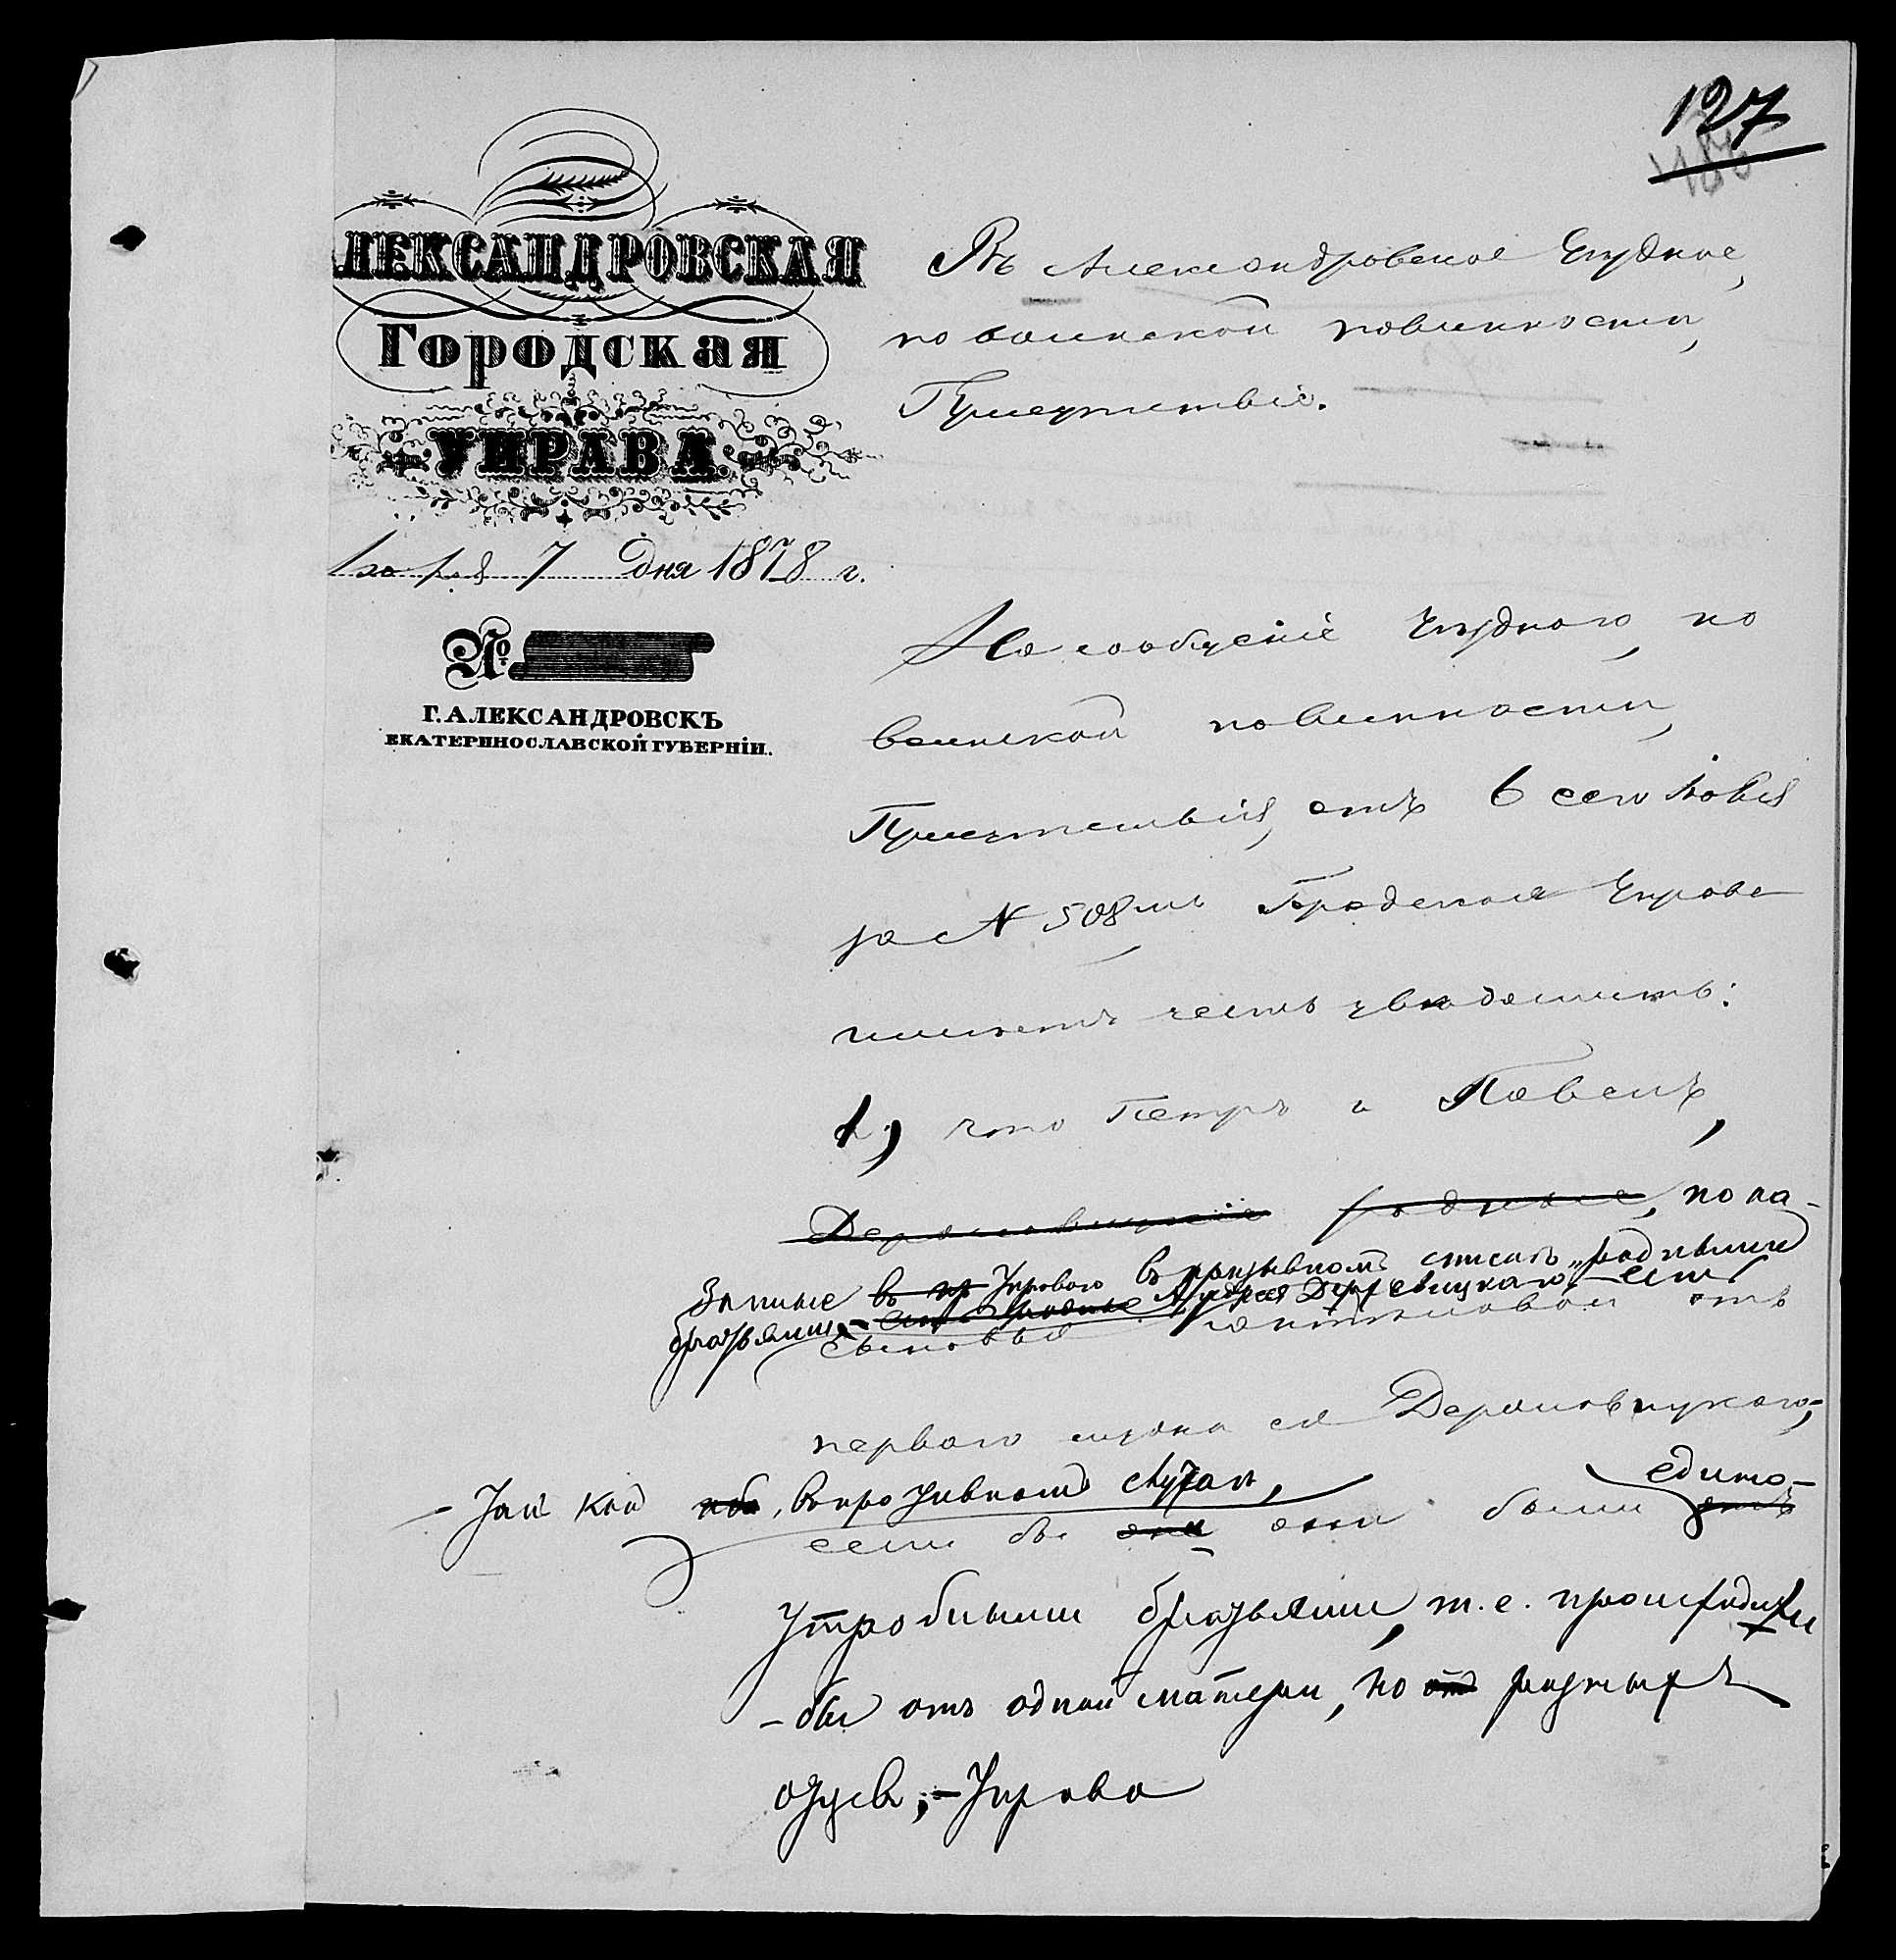 127
АЛЕКСАНДРОВСКАЯ
Городская
УПРАВА.
Ноября 7 дня 1878 г.
№
Г. АЛЕКСАНДРОВСКЪ
ЕКАТЕРИНОСЛАВСКОЙ ГУБЕРНІИ.
Въ Александровское Уѣздное,
по воинской повинности,
Присутствіе.
На сообщеніе Уѣзднаго, по
воинской повинности,
Присутствія, отъ 6 сего Ноября
за № 508мъ Городская Управа
имѣетъ честь увѣдомить:
1, что Петръ и Павелъ,
родные, пока-
занные въ Управою въ призывномъ спискѣ „родными
братьями" Андрея
сыновья отъ
перваго мужа ея
– такъ какъ, въ противномъ случаѣ,
если бы они они были едино-
утробными братьями, т.е. происходили
– бы отъ одной матери, но отъ разныхъ
отцевъ, – Управа